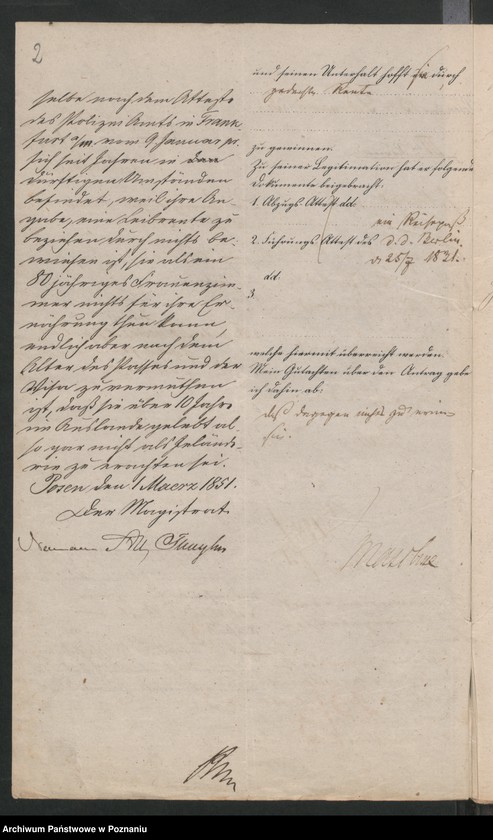 2
selbe nach dem Atteste
des Polizei Amts in Frank
furt a/m. vom 9 Januar pr.
sich seit Jahren in
dürftigen Umständen
befindet, weil ihre An-
gabe, eine Leibrente zu
beziehen durch nichts be-
wiesen ist, sie als ein
80 jähriges Frauenzim-
mer nichts für ihre Er-
nährung thun kann,
endlich aber nach dem
Alter des Passes und der
Visa zu vermuthen
ist, daß sie über 10 Jahre
im Auslande gelebt al-
so gar nicht als Inlände-
rin zu erachten sei.
Posen den 1 Maerz 1851.
Der Magistrat
und seinen Unterhalt hofft sie durch
gedachte Rente
zu gewinnen.
Zu seiner Legitimation hat er folgende
Dokumente beigebracht.
1. Abzugs-Attest dd
ein Reisepaß
2. Führungs-Attest des d. d. Berlin
v 25/ 1831.
dd
3.
welche hiermit überreicht werden.
Mein Gutachten über den Antrag gebe
ich dahin ab:
daß dagegen nichts zu erin-
Archiwum Państwowe w Poznaniu